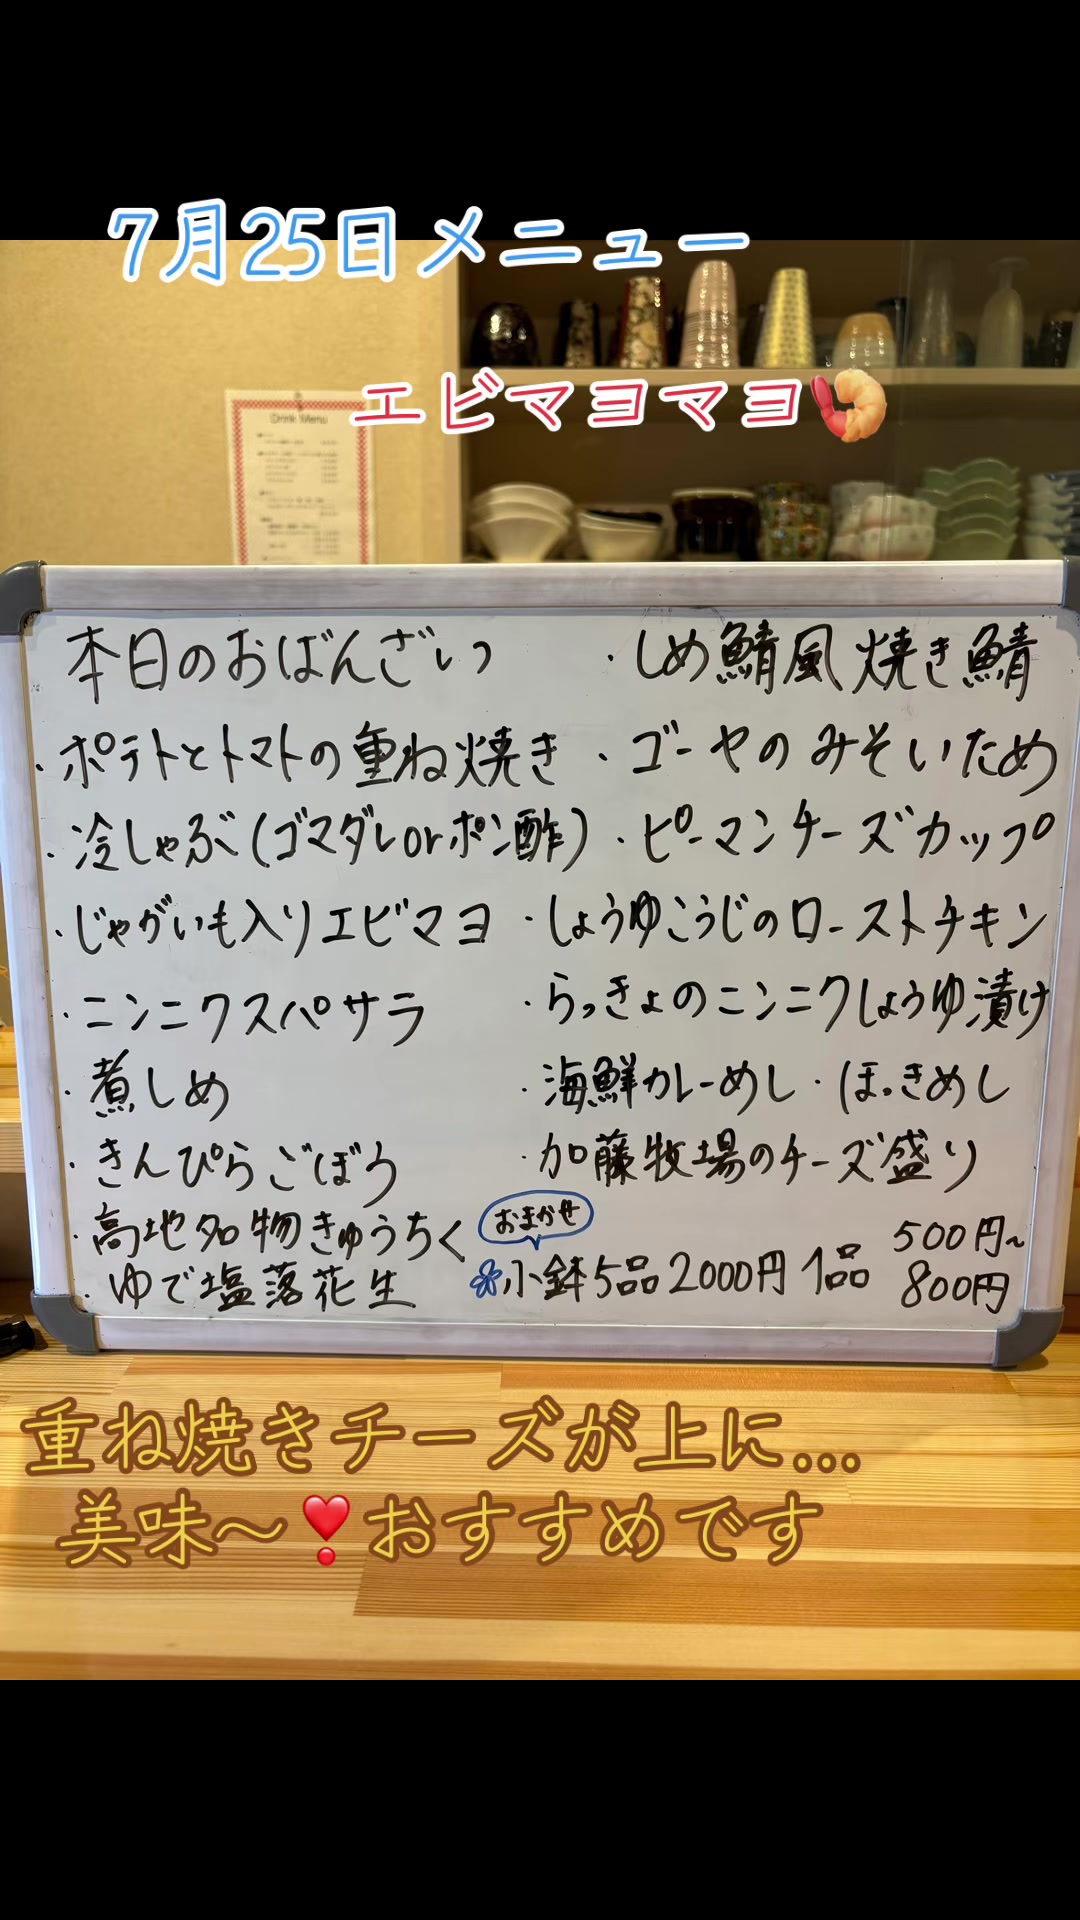 7月25日メニュー
エビマヨマヨ
Drink Menu
本日のおばんざい
・ポテトとトマトの重ね焼き
・冷しゃぶ(ゴマダレorポン酢)
・じゃがいも入りエビマヨ
・ニンニクスパサラ
・煮しめ
・きんぴらごぼう
・高地名物きゅうちく
・ゆで塩落花生
・しめ鯖風焼き鯖
・ゴーヤのみそいため
・ピーマンチーズカップ
・しょうゆこうじのローストチキン
・らっきょのニンニクしょうゆ漬け
・海鮮カレーめし・ほっきめし
・加藤牧場のチーズ盛り
おまかせ
小鉢5品2000円 1品 500円~
800円
重ね焼きチーズが上に...
美味〜❣️おすすめです